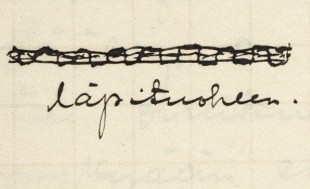 läpituoheen.